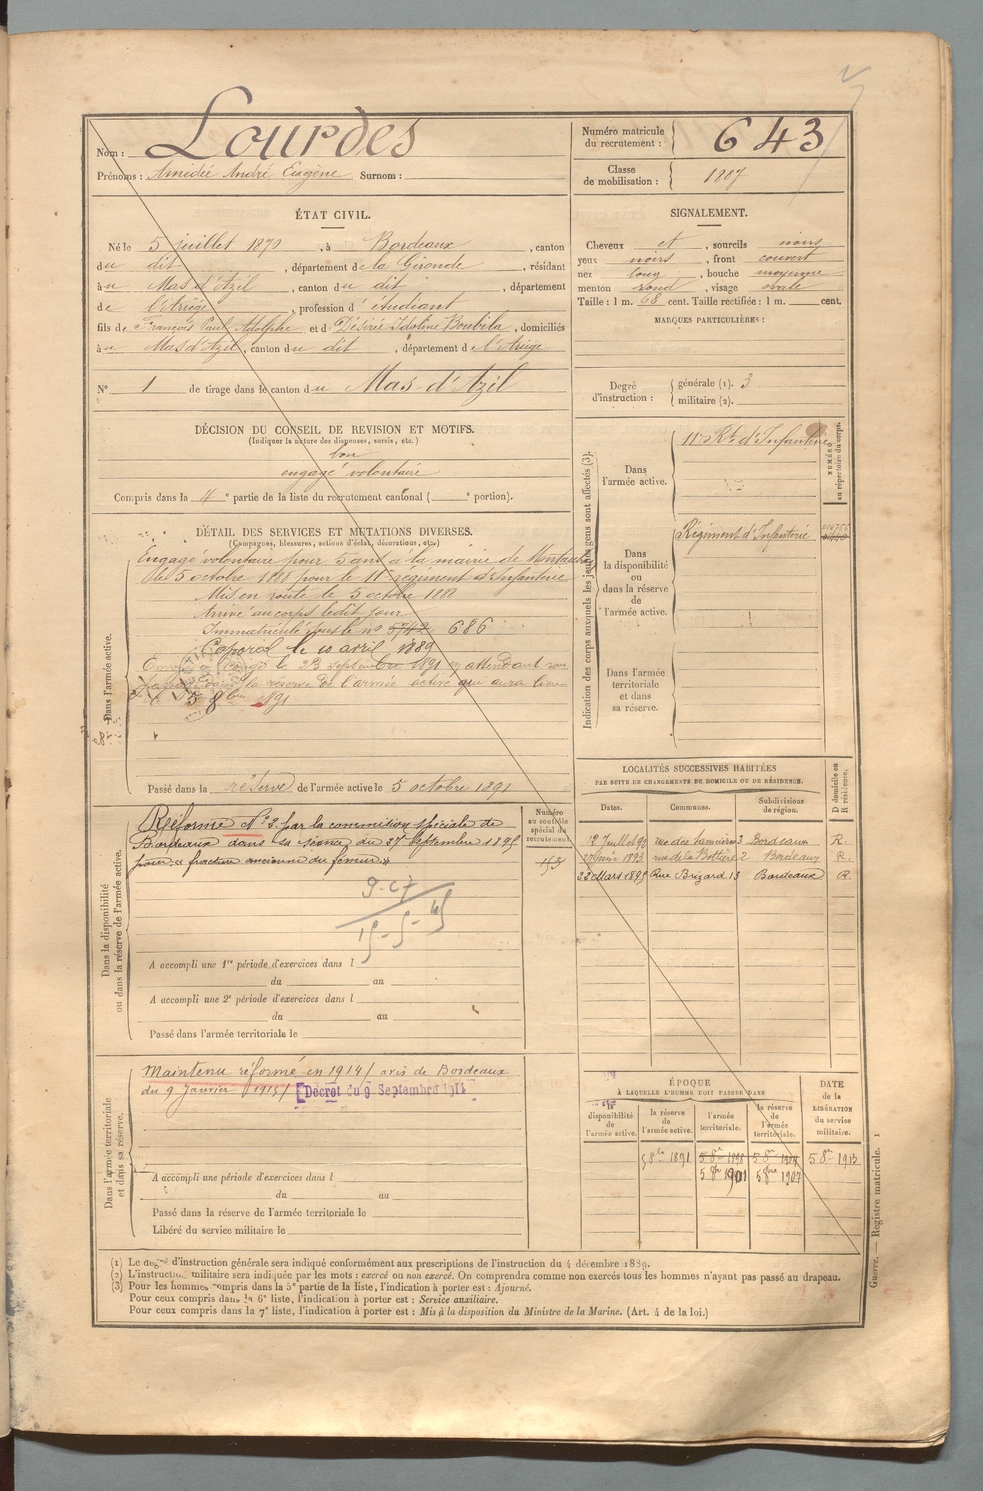 Nom : Lourdes
Prénoms : Amédée André Eugène Surnom :
Numéro matricule du recrutement : 643
Classe de mobilisation : 1887
ÉTAT CIVIL.
Né le 5 juillet 1870, à Bordeaux, canton
du dit, département de la Gironde, résidant
au Mas d'Azil, canton du dit, département
de l'Ariège, profession d'étudiant
fils de François Paul Adolphe et d Désirée Idoline Boubila, domiciliés
au Mas d'Azil, canton du dit, département de l'Ariège
N° 1 de tirage dans le canton du Mas-d'Azil
SIGNALEMENT.
Cheveux et, sourcils noirs
yeux noirs, front couvert
nez long, bouche moyenne
menton rond, visage ovale
Taille : 1 m. 68 cent. Taille rectifiée : 1 m. cent.
MARQUES PARTICULIÈRES :
Degré d'instruction : générale (1). 3
militaire (2).
DÉCISION DU CONSEIL DE REVISION ET MOTIFS.
(Indiquer la nature des dispenses, sursis, etc.)
bon
engagé volontaire
Compris dans la 4e partie de la liste du recrutement cantonal ( e portion).
DÉTAIL DES SERVICES ET MUTATIONS DIVERSES.
(Campagnes, blessures, actions d'éclat, décorations, etc.)
Dans l'armée active.
Engagé volontaire pour 5 ans à la mairie de
le 5 octobre 1888 pour le 11e régiment d'Infanterie
Mis en route le 5 octobre 1888
Arrivé au corps ledit jour
Immatriculé sous le no 5742 686
Caporal le 10 avril 1889
Envoyé en congé le 23 septembre 1891 en attendant son
passage dans la réserve de l'armée active qui aura lieu
le 5 8bre 1891
Passé dans la réserve de l'armée active le 5 octobre 1891
Indication des corps auxquels les jeunes gens sont affectés (3).
NUMÉRO au répertoire du corps.
Dans l'armée active.
11e Rt d'Infanterie
Dans la disponibilité ou dans la réserve de l'armée active.
Régiment d'Infanterie
Dans l'armée territoriale et dans sa réserve.
Dans la disponibilité ou dans la réserve de l'armée active.
Réformé No 2 par la commission spéciale de
Bordeaux dans sa séance du 27 Septembre 1895
pour « fracture ancienne du fémur »
Numéro au contrôle spécial du recrutement
153
9-C7
15-5-15
A accompli une 1re période d'exercices dans l
du au
A accompli une 2e période d'exercices dans l
du au
Passé dans l'armée territoriale le
LOCALITÉS SUCCESSIVES HABITÉES
PAR SUITE DE CHANGEMENTS DE DOMICILE OU DE RÉSIDENCE.
Dates. Communes. Subdivisions de région. D domicile ou R résidence.
rue des 3 Bordeaux R.
1893 rue de la 2 Bordeaux R.
23 Mars 1895 Rue Brizard 13 Bordeaux R.
Dans l'armée territoriale et dans sa réserve.
Maintenu réformé en 1914 / avis de Bordeaux
du 9 Janvier 1915 / Décret du 9 Septembre 1914
A accompli une période d'exercices dans l
du au
Passé dans la réserve de l'armée territoriale le
Libéré du service militaire le
ÉPOQUE
À LAQUELLE L'HOMME DOIT PASSER DANS
la disponibilité de l'armée active. la réserve de l'armée active. l'armée territoriale. la réserve de l'armée territoriale.
DATE de la LIBÉRATION du service militaire.
5 8bre 1891 5 8bre 1898 5 8bre 1904 5 8bre 1913
5 8bre 1901 5 8bre 1907
(1) Le degré d'instruction générale sera indiqué conformément aux prescriptions de l'instruction du 4 décembre 1889.
(2) L'instruction militaire sera indiquée par les mots : exercé ou non exercé. On comprendra comme non exercés tous les hommes n'ayant pas passé au drapeau.
(3) Pour les hommes compris dans la 5e partie de la liste, l'indication à porter est : Ajourné.
Pour ceux compris dans la 6e liste, l'indication à porter est : Service auxiliaire.
Pour ceux compris dans la 7e liste, l'indication à porter est : Mis à la disposition du Ministre de la Marine. (Art. 4 de la loi.)
Guerre. — Registre matricule. 1